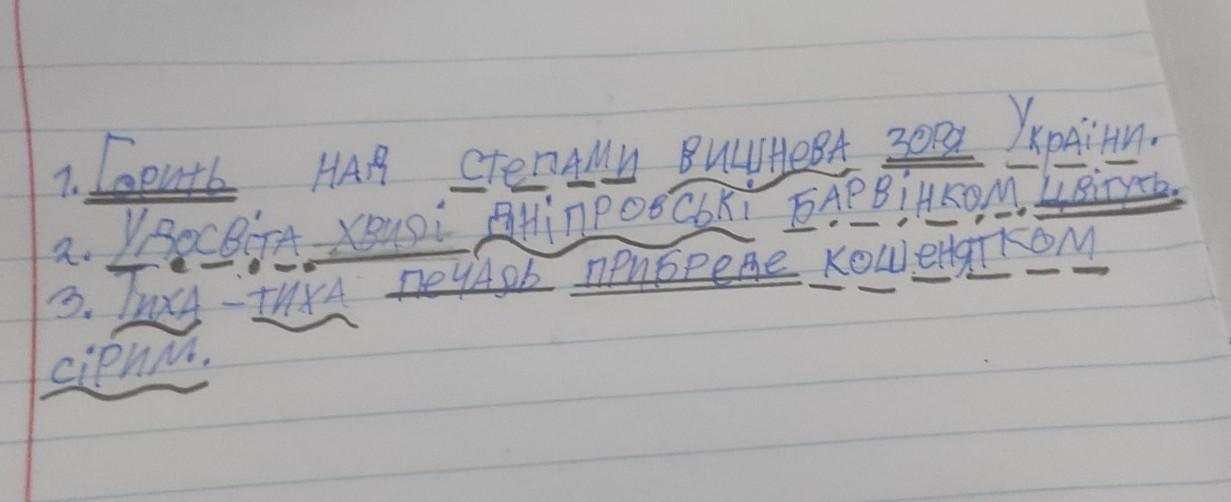 1. Горить над степами вишнева зоря України.
2. Удосвіта хвилі дніпровські барвінком цвітуть.
3. Тиха-тиха печаль прибреде кошенятком
сірим.